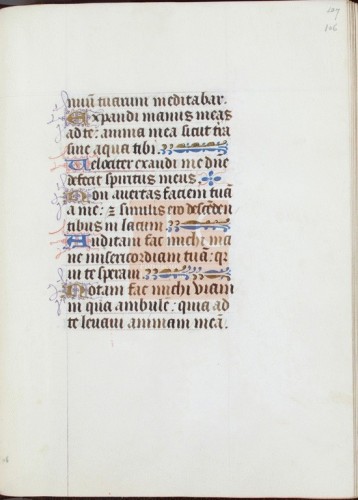 107
106
nuū tuarum meditabar.
Expandi manus meas
ad te: anima mea sicut tra
sine aqua tibi.
Uelociter exaudi me dñe
defecit spiritus meus.
Non auertas faciem tuā
a me: ⁊ similis ero descēden
tibus in lacum.
Auditam fac michi ma
ne misericordiam tuā: qr̄
in te speraui.
Notam fac michi viam
in qua ambulē: quia ad
te leuaui animam meā.